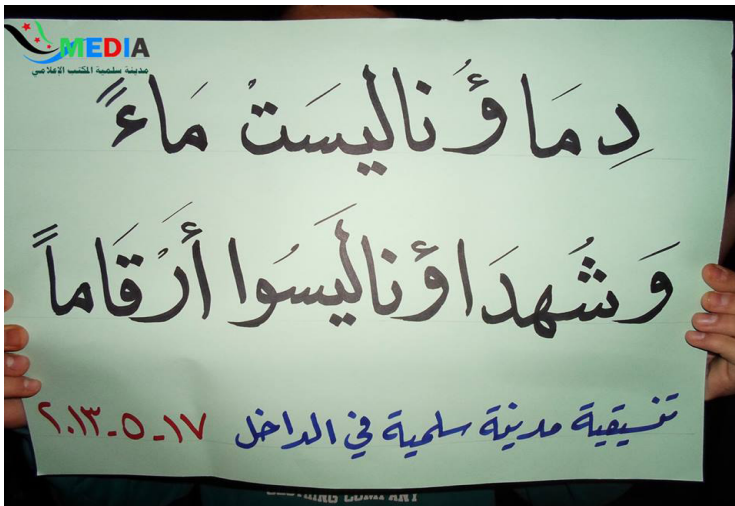 MEDIA
مدينة سلمية المكتب الإعلامي
دِمَاؤُنا ليسَتْ مَاءً
وَشُهدَاؤنا ليَسُوا أَرْقَاماً
تنسيقية مدينة سلمية في الداخل ١٧-٥-٢٠١٣
CLOTHING COMPANY